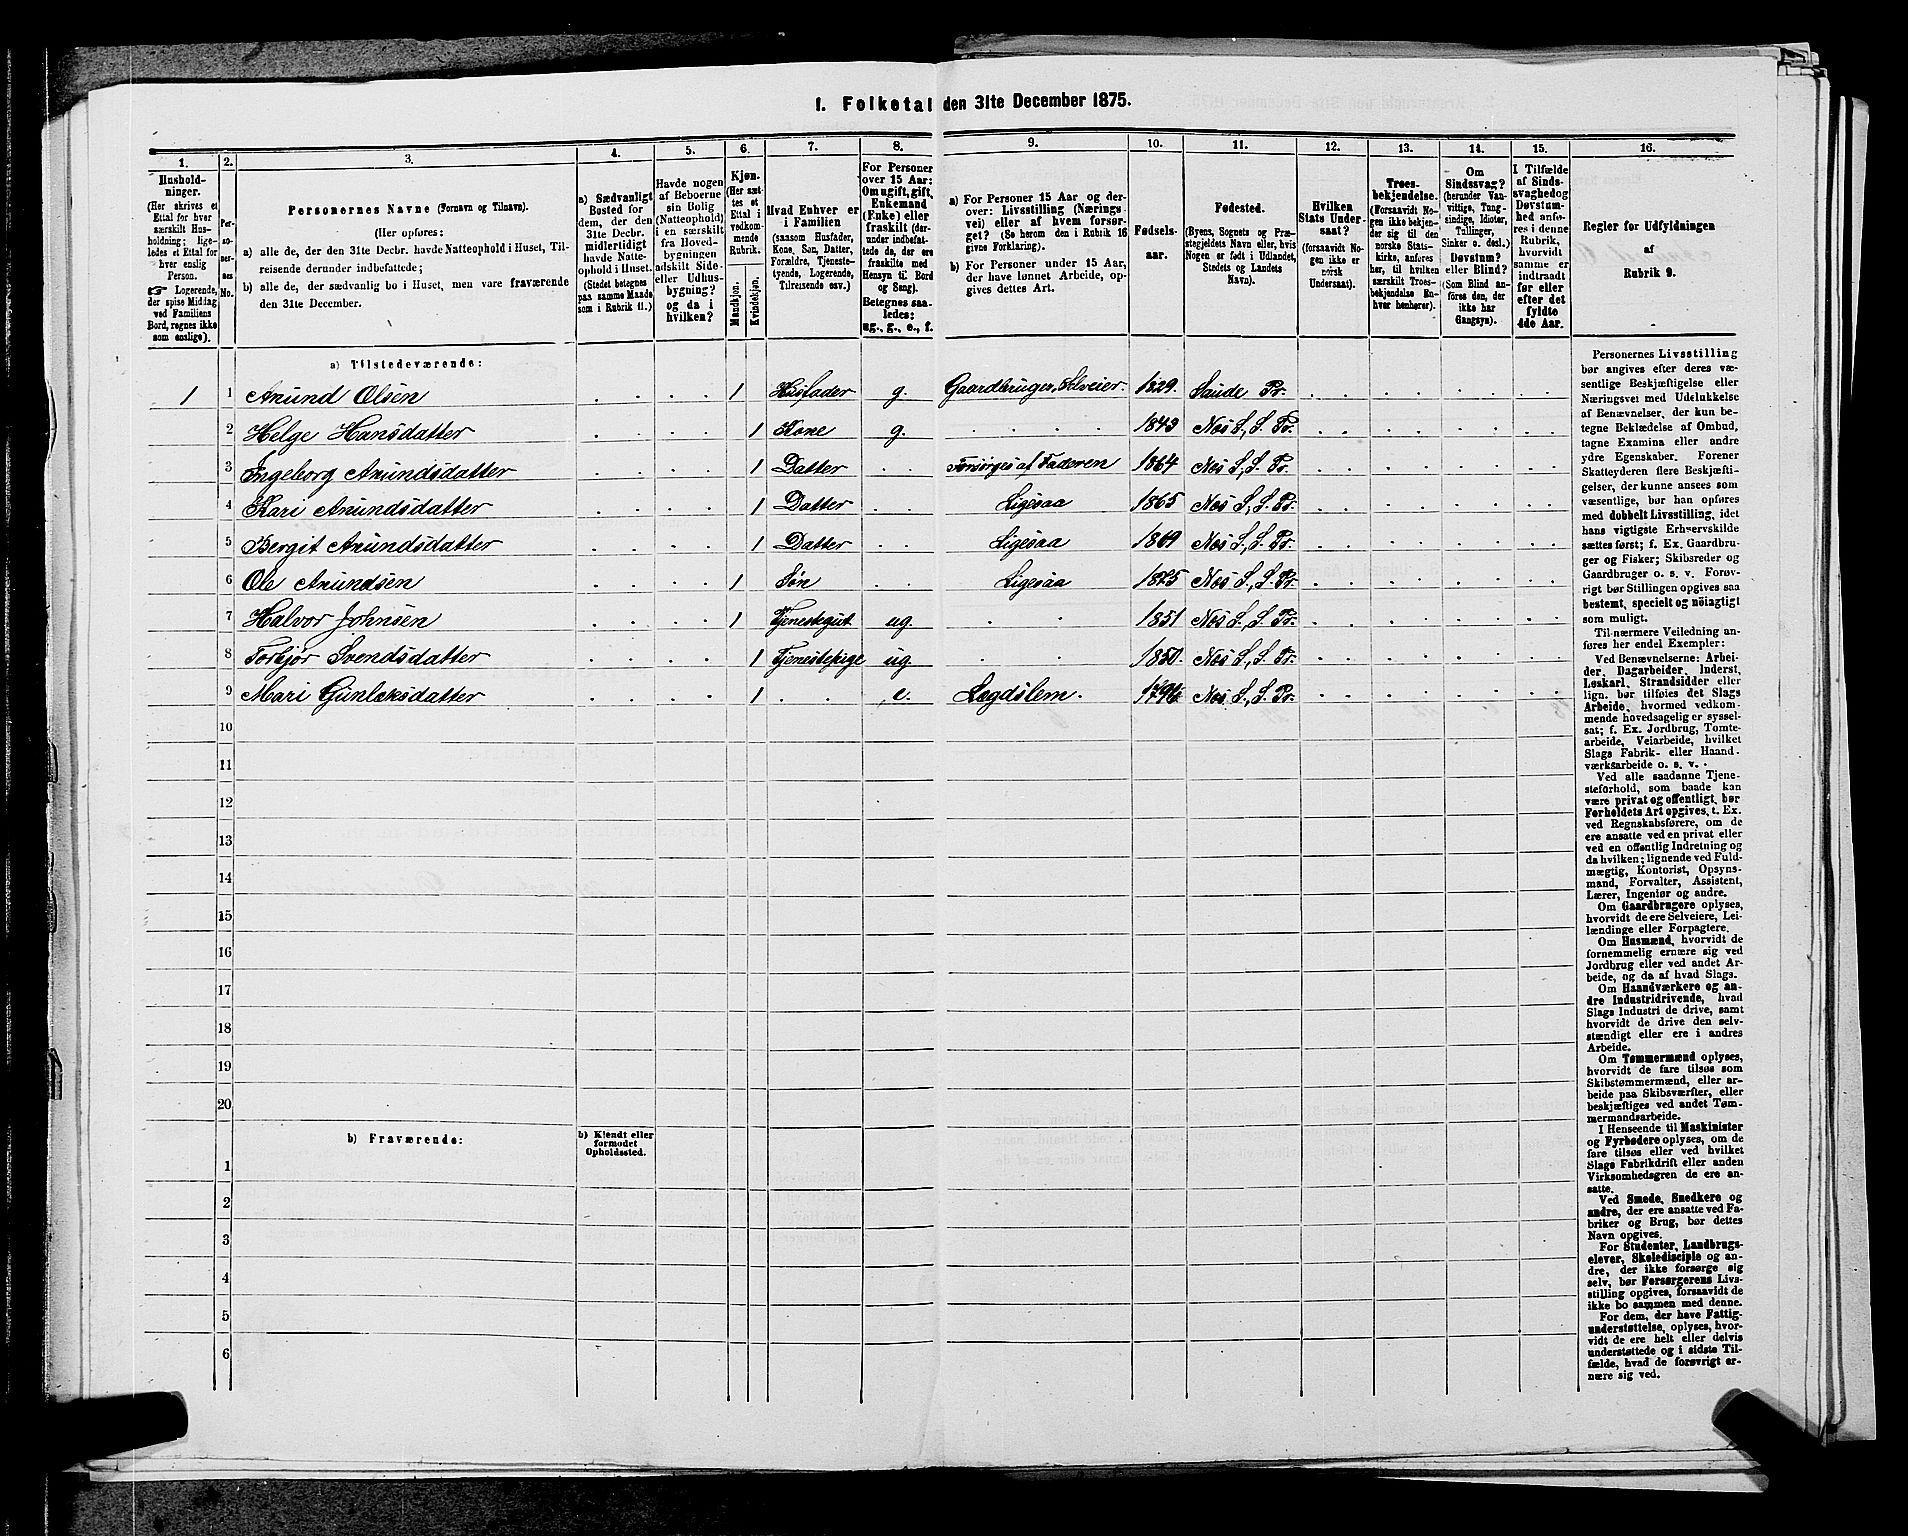 1. Folketal den 31te December 1875.
1. 2. 3. 4. 5. 6. 7. 8. 9. 10. 11. 12. 13. 14. 15. 16.
Hushold-
ninger.
(Her skrives et
Ettal for hver
særskilt Hus-
holdning; lige-
ledes et Ettal for
hver enslig
Person.
☞ Logerende,
der spise Middag
ved Familiens
Bord, regnes ikke
som enslige).
Per-
so-
ner-
nes
No.
Personernes Navne (Fornavn og Tilnavn).
(Her opføres:
a) alle de, der den 31te Decbr. havde Natteophold i Huset, Til-
reisende derunder indbefattede;
b) alle de, der sædvanlig bo i Huset, men vare fraværende
den 31te December.
a) Sædvanligt
Bosted for
dem, der den
31te Decbr.
midlertidigt
havde Natte-
ophold i Huset.
(Stedet betegnes
paa samme Maade
som i Rubrik 11.)
Havde nogen
af Beboerne
sin Bolig
(Natteophold)
i en særskilt
fra Hoved-
bygningen
adskilt Side-
eller Udhus-
bygning?
og da i
hvilken?
Kjøn.
(Her sæt-
tes et
Ettal i
vedkom-
mende
Rubrik.
Mandkjøn.
Kvindekjøn.
Hvad Enhver er
i Familien
(saasom Husfader,
Kone, Søn, Datter,
Forældre, Tjeneste-
tyende, Logerende,
Tilreisende osv.)
For Personer
over 15 Aar:
Om ugift, gift,
Enkemand
(Enke) eller
fraskilt (der-
under indbefat-
tede de, der ere
fraskilte med
Hensyn til Bord
og Seng).
Betegnes saa-
ledes:
ug., g., e., f.
a) For Personer 15 Aar og der-
over: Livsstilling (Nærings-
vei) eller af hvem forsør-
get? (Se herom den i Rubrik 16
givne Forklaring).
b) For Personer under 15 Aar,
der have lønnet Arbeide, op-
gives dettes Art.
Fødsels-
aar.
Fødested.
(Byens, Sognets og Præ-
stegjeldets Navn eller, hvis
Nogen er født i Udlandet,
Stedets og Landets
Navn).
Hvilken
Stats Under-
saat?
(forsaavidt No-
gen ikke er
norsk
Undersaat).
Troes-
bekjendelse.
(Forsaavidt No-
gen ikke bekjen-
der sig til den
norske Stats-
kirke, anføres
her, til hvilken
særskilt Troes-
bekjendelse En-
hver henhører).
Om
Sindssvag?
(herunder Van-
vittige, Tung-
sindige, Idioter,
Tullinger,
Sinker o. desl.)
Døvstum?
eller Blind?
(Som Blind an-
føres den, der
ikke har
Gangsyn).
I Tilfælde
af Sinds-
svaghed og
Døvstum-
hed anfø-
res i denne
Rubrik,
hvorvidt
samme er
indtraadt
før eller
efter det
fyldte
4de Aar.
Regler for Udfyldningen
af
Rubrik 9.
a) Tilstedeværende:
1 1 Anund Olsen 1 Husfader g. Gaardbruger, Selveier. 1829. Saude Pr.
2 Helge Hansdatter 1 Kone g. 1843 Næs S., S. Pr.
3 Ingeborg Anundsdatter 1 Datter Forsørges af Faderen 1864 Næs S., S. Pr.
4 Kari Anundsdatter 1 Datter Ligesaa 1865 Næs S., S. Pr.
5 Bergit Anundsdatter 1 Datter Ligesaa 1869 Næs S., S. Pr.
6 Ole Anundsen 1 Søn Ligesaa 1875 Næs S., S. Pr.
7 Halvor Johnsen 1 Tjenestegut ug. 1851 Næs S., S. Pr.
8 Torbjør Svendsdatter 1 Tjenestepige ug. 1850. Næs S., S. Pr.
9 Mari Gunleksdatter 1 e. Lægdslem. 1796 Næs S., S. Pr.
10
11
12
13
14
15
16
17
18
19
20
b) Fraværende:
b) Kjendt eller
formodet
Opholdssted.
1
2
3
4
5
6
Personernes Livsstilling
bør angives efter deres væ-
sentlige Beskjæftigelse eller
Næringsvei med Udelukkelse
af Benævnelser, der kun be-
tegne Beklædelse af Ombud,
tagne Examina eller andre
ydre Egenskaber. Forener
Skatteyderen flere Beskjæfti-
gelser, der kunne ansees som
væsentlige, bør han opføres
med dobbelt Livsstilling, idet
hans vigtigste Erhvervskilde
sættes først; f. Ex. Gaardbru-
ger og Fisker; Skibsreder og
Gaardbruger o. s. v. Forøv-
rigt bør Stillingen opgives saa
bestemt, specielt og nøiagtigt
som muligt.
Til nærmere Veiledning an-
føres her endel Exempler:
Ved Benævnelserne: Arbei-
der, Dagarbeider, Inderst,
Løskarl, Strandsidder eller
lign. bør tilføies det Slags
Arbeide, hvormed vedkom-
mende hovedsagelig er syssel-
sat; f. Ex. Jordbrug, Tomte-
arbeide, Veiarbeide, hvilket
Slags Fabrik- eller Haand-
værksarbeide o. s. v.
Ved alle saadanne Tjene-
steforhold, som baade kan
være privat og offentligt, bør
Forholdets Art opgives, t. Ex.
ved Regnskabsførere, om de
ere ansatte ved en privat eller
ved en offentlig Indretning og
da hvilken; lignende ved Fuld-
mægtig, Kontorist, Opsyns-
mand, Forvalter, Assistent,
Lærer, Ingeniør og andre.
Om Gaardbrugere oplyses,
hvorvidt de ere Selveiere, Lei-
lændinge eller Forpagtere.
Om Husmænd, hvorvidt de
fornemmelig ernære sig ved
Jordbrug eller ved andet Ar-
beide, og da af hvad Slags.
Om Haandværkere og an-
dre Industridrivende, hvad
Slags Industri de drive, samt
hvorvidt de drive den selv-
stændigt eller ere i andres
Arbeide.
Om Tømmermænd oplyses,
hvorvidt de fare tilsøs som
Skibstømmermænd, eller ar-
beide paa Skibsværfter, eller
beskjæftiges ved andet Tøm-
mermandsarbeide.
I Henseende til Maskinister
og Fyrbødere oplyses, om de
fare tilsøs eller ved hvilket
Slags Fabrikdrift eller anden
Virksomhedsgren de ere an-
satte.
Ved Smede, Snedkere og
andre, der ere ansatte ved Fa-
briker og Brug, bør dettes
Navn opgives.
For Studenter, Landbrugs-
elever, Skoledisciple og an-
dre, der ikke forsørge sig
selv, bør Forsørgerens Livs-
stilling opgives, forsaavidt de
ikke bo sammen med denne.
For dem, der have Fattig-
understøttelse, oplyses, hvor-
vidt de ere helt eller delvis
understøttede og i sidste Til-
fælde, hvad de forøvrigt er-
nære sig ved.